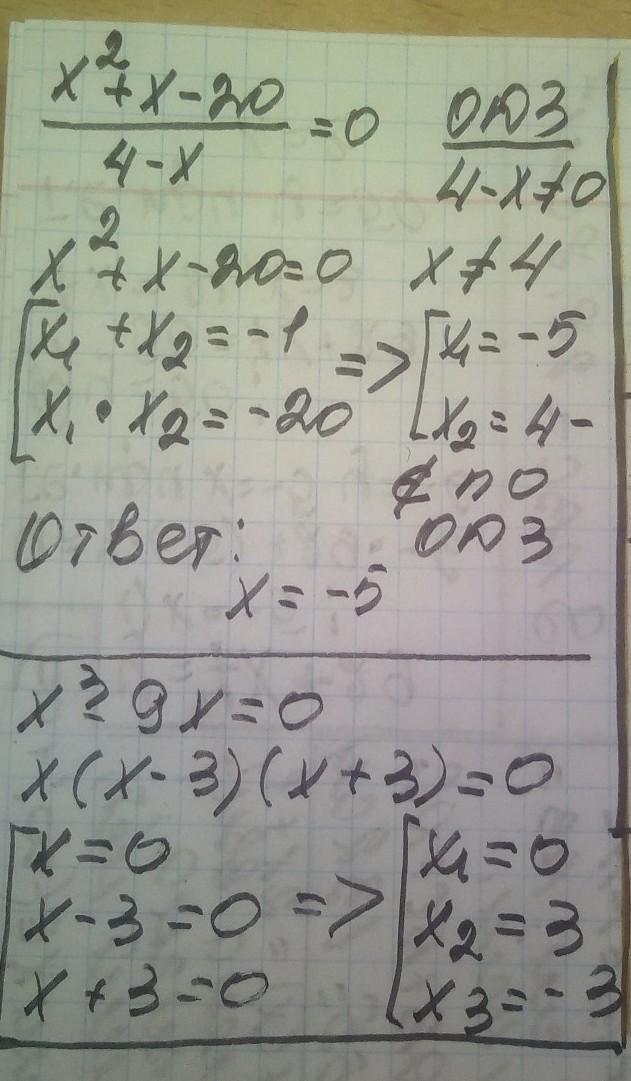 x² + x - 20
4 - x
= 0
ОДЗ
4 - x ≠ 0
x² + x - 20 = 0
x ≠ 4
[ x₁ + x₂ = -1
x₁ • x₂ = -20
=> [ x₁ = -5
x₂ = 4 -
∉ по
ОДЗ
Ответ:
x = -5
x³ - 9x = 0
x(x - 3)(x + 3) = 0
[ x = 0
x - 3 = 0
x + 3 = 0
=> [ x₁ = 0
x₂ = 3
x₃ = -3